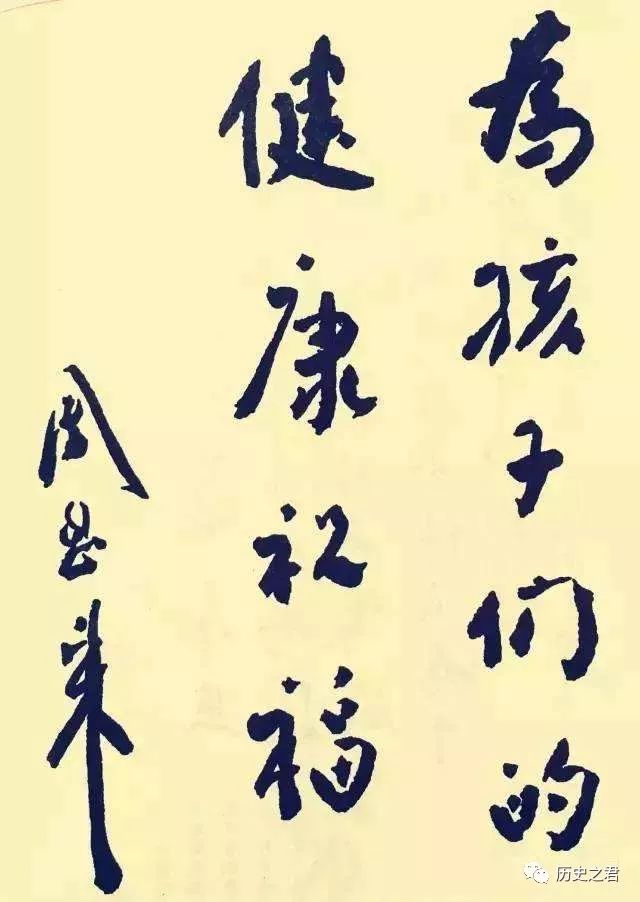 為孩子们的
健康祝福
周恩来
历史之君